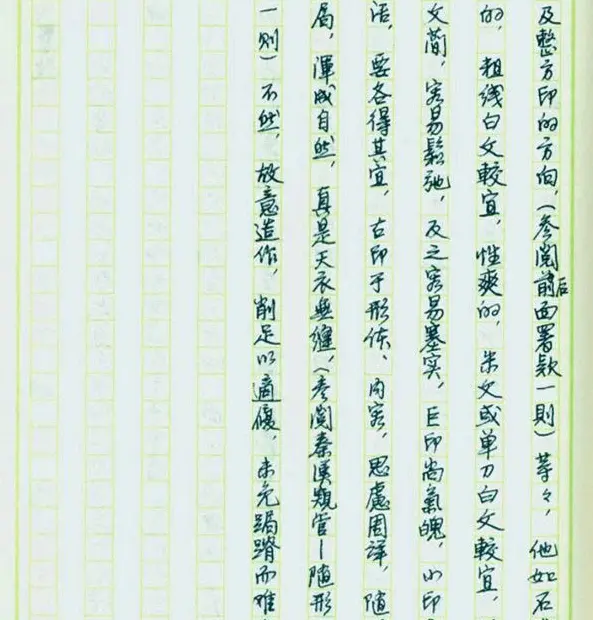 及整方印的方向，（参阅前后面署款一则）等々，他如石
的，粗线白文較宜，性爽的，朱文或单刀白文較宜，
文简，容易鬆弛，反之容易塞实，巨印尚氣魄，小印
活，要各得其宜，古印于形体、内容，思慮周详，随
局，渾成自然，真是天衣無缝，（参阅秦漢窥管—随形
一则）不然，故意造作，削足以適履，未免跼蹐而难